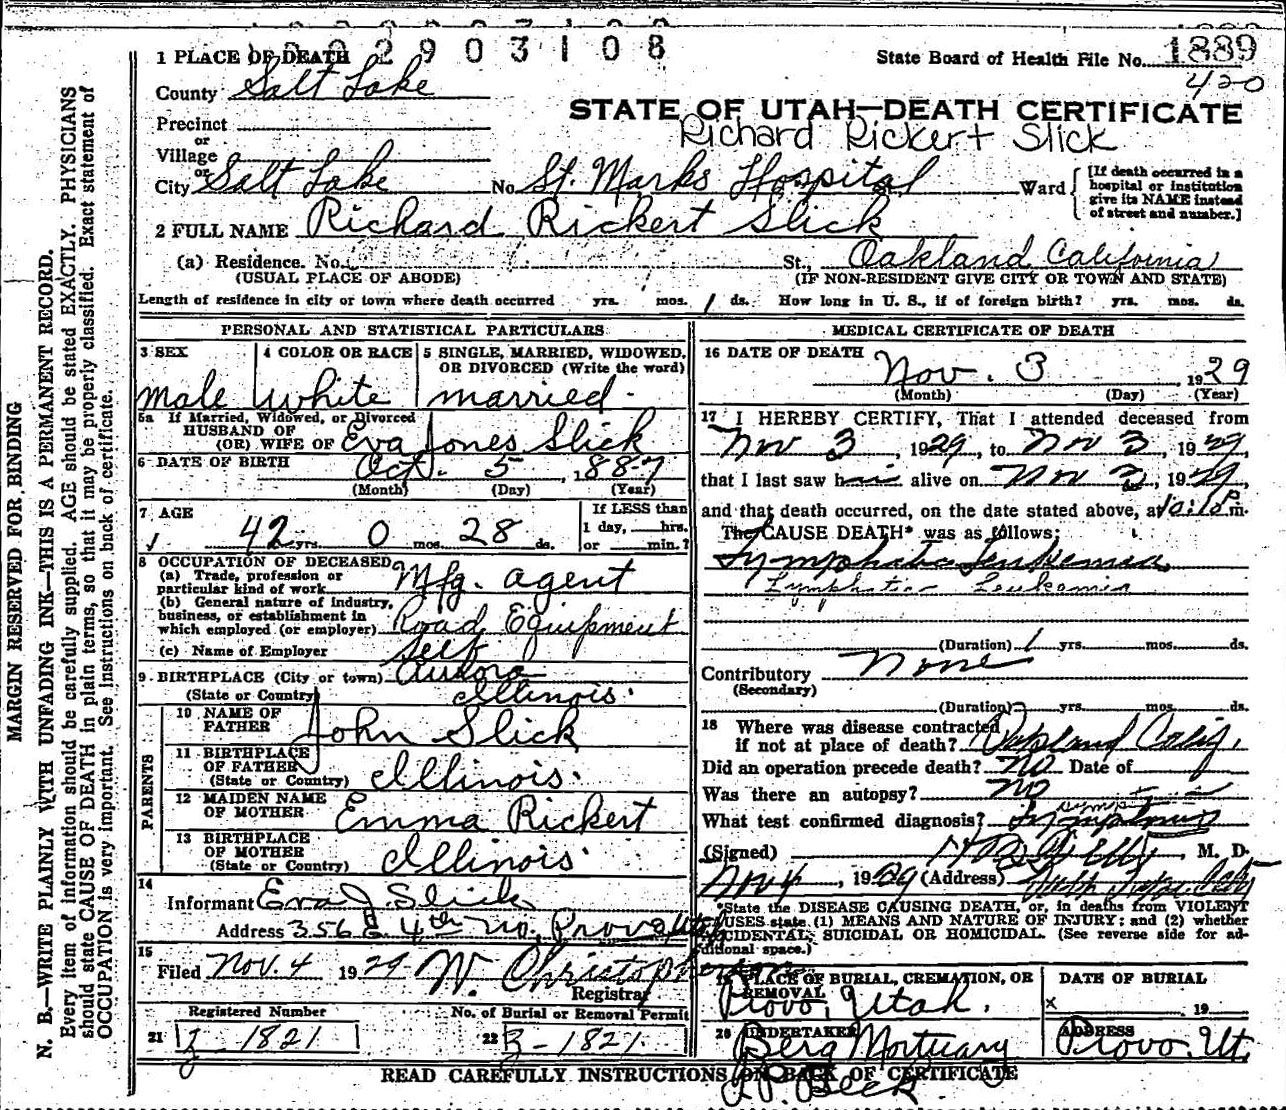 2903108
1 PLACE OF DEATH
State Board of Health File No. 1889
420
County Salt Lake
STATE OF UTAH—DEATH CERTIFICATE
Precinct
Richard Rickert Slick
or
Village
or
City Salt Lake No. St. Marks Hospital St., Ward
[If death occurred in a hospital or institution give its NAME instead of street and number.]
2 FULL NAME Richard Rickert Slick
(a) Residence. No. St., Oakland California
(USUAL PLACE OF ABODE) (IF NON-RESIDENT GIVE CITY OR TOWN AND STATE)
Length of residence in city or town where death occurred yrs. mos. 1 ds. How long in U. S., if of foreign birth? yrs. mos. ds.
PERSONAL AND STATISTICAL PARTICULARS
3 SEX
male
4 COLOR OR RACE
white
5 SINGLE, MARRIED, WIDOWED, OR DIVORCED (Write the word)
married.
5a If Married, Widowed, or Divorced
HUSBAND OF
(OR) WIFE OF Eva Jones Slick
6 DATE OF BIRTH Oct. 5, 1887
(Month) (Day) (Year)
7 AGE
42 yrs. 0 mos. 28 ds.
If LESS than
1 day, hrs.
or min.?
8 OCCUPATION OF DECEASED
(a) Trade, profession or
particular kind of work Mfg. agent
(b) General nature of industry,
business, or establishment in
which employed (or employer) Road Equipment
(c) Name of Employer Self
9 BIRTHPLACE (City or town) Aurora
(State or Country) Illinois.
PARENTS
10 NAME OF
FATHER John Slick
11 BIRTHPLACE
OF FATHER
(State or Country) Illinois.
12 MAIDEN NAME
OF MOTHER Emma Rickert
13 BIRTHPLACE
OF MOTHER
(State or Country) Illinois.
14
Informant Eva J. Slick
Address 356 E 4th No. Provo Utah
15
Filed Nov. 4 1929 W. Christopherson
Registrar
Registered Number
21 1821
No. of Burial or Removal Permit
22 B-1821
MEDICAL CERTIFICATE OF DEATH
16 DATE OF DEATH
Nov. 3, 1929
(Month) (Day) (Year)
17 I HEREBY CERTIFY, That I attended deceased from
Nov 3, 1929, to Nov 3, 1929,
that I last saw him alive on Nov 3, 1929,
and that death occurred, on the date stated above, at 10:15 P.m.
The CAUSE DEATH* was as follows:
Lymphatic Leukemia
Lymphatic Leukemia
(Duration) 1 yrs. mos. ds.
Contributory None
(Secondary)
(Duration) yrs. mos. ds.
18 Where was disease contracted
if not at place of death? Oakland Calif.
Did an operation precede death? no Date of
Was there an autopsy? no
sympt
What test confirmed diagnosis? symptoms
(Signed) M. D.
Nov 4, 1929 (Address)
*State the DISEASE CAUSING DEATH, or, in deaths from VIOLENT
CAUSES state (1) MEANS AND NATURE OF INJURY; and (2) whether
ACCIDENTAL, SUICIDAL OR HOMICIDAL. (See reverse side for ad-
ditional space.)
19 PLACE OF BURIAL, CREMATION, OR
REMOVAL
Provo, Utah.
DATE OF BURIAL
x 19
20 UNDERTAKER
Berg Mortuary
ADDRESS
Provo. Ut.
READ CAREFULLY INSTRUCTIONS ON BACK OF CERTIFICATE
MARGIN RESERVED FOR BINDING
N. B.—WRITE PLAINLY WITH UNFADING INK—THIS IS A PERMANENT RECORD.
Every item of information should be carefully supplied. AGE should be stated EXACTLY. PHYSICIANS
should state CAUSE OF DEATH in plain terms, so that it may be properly classified. Exact statement of
OCCUPATION is very important. See instructions on back of certificate.